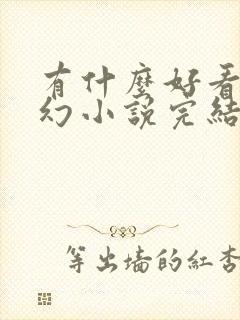 有什麼好看
幻小說完結
等出墻的紅杏